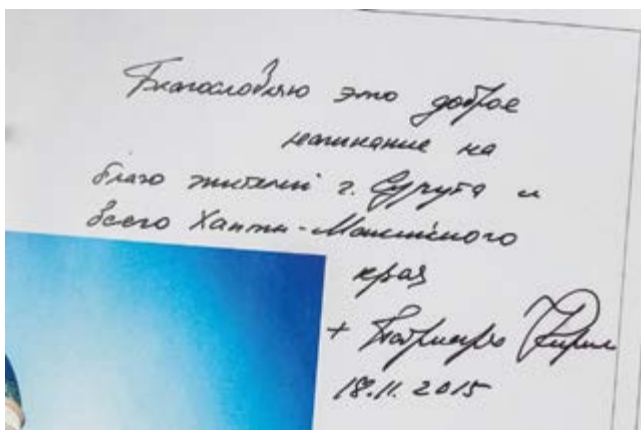 Благословляю это доброе
начинание на
благо жителей г. Сургута и
всего Ханты-Мансийского
края
+ Патриарх Кирилл
18.11.2015